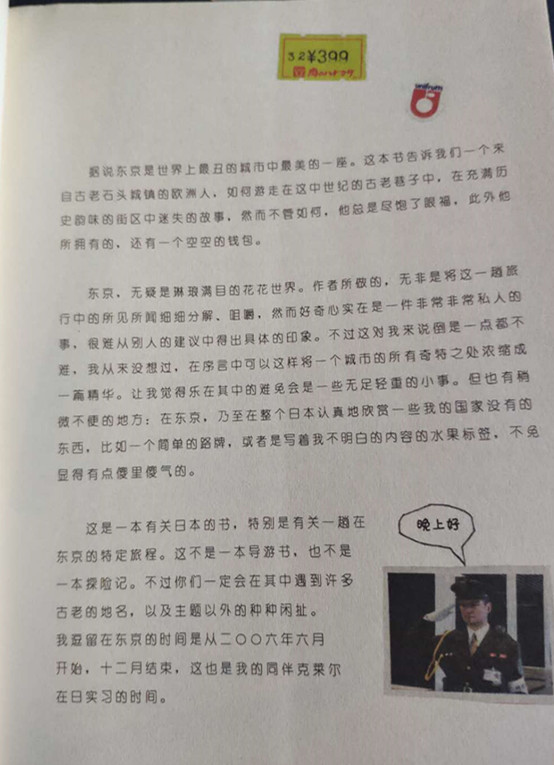 32 ¥399
据说东京是世界上最丑的城市中最美的一座。这本书告诉我们一个来
自古老石头城镇的欧洲人，如何游走在这中世纪的古老巷子中，在充满历
史韵味的街区中迷失的故事，然而不管如何，他总是尽饱了眼福，此外他
所拥有的，还有一个空空的钱包。
东京，无疑是琳琅满目的花花世界。作者所做的，无非是将这一趟旅
行中的所见所闻细细分解、咀嚼，然而好奇心实在是一件非常非常私人的
事，很难从别人的建议中得出具体的印象。不过这对我来说倒是一点都不
难，我从来没想过，在序言中可以这样将一个城市的所有奇特之处浓缩成
一篇精华。让我觉得乐在其中的难免会是一些无足轻重的小事。但也有稍
微不便的地方：在东京，乃至在整个日本认真地欣赏一些我的国家没有的
东西，比如一个简单的路牌，或者是写着我不明白的内容的水果标签，不免
显得有点傻里傻气的。
这是一本有关日本的书，特别是有关一趟在
东京的特定旅程。这不是一本导游书，也不是
一本探险记。不过你们一定会在其中遇到许多
古老的地名，以及主题以外的种种闲扯。
我逗留在东京的时间是从二〇〇六年六月
开始，十二月结束，这也是我的同伴克莱尔
在日实习的时间。
晚上好